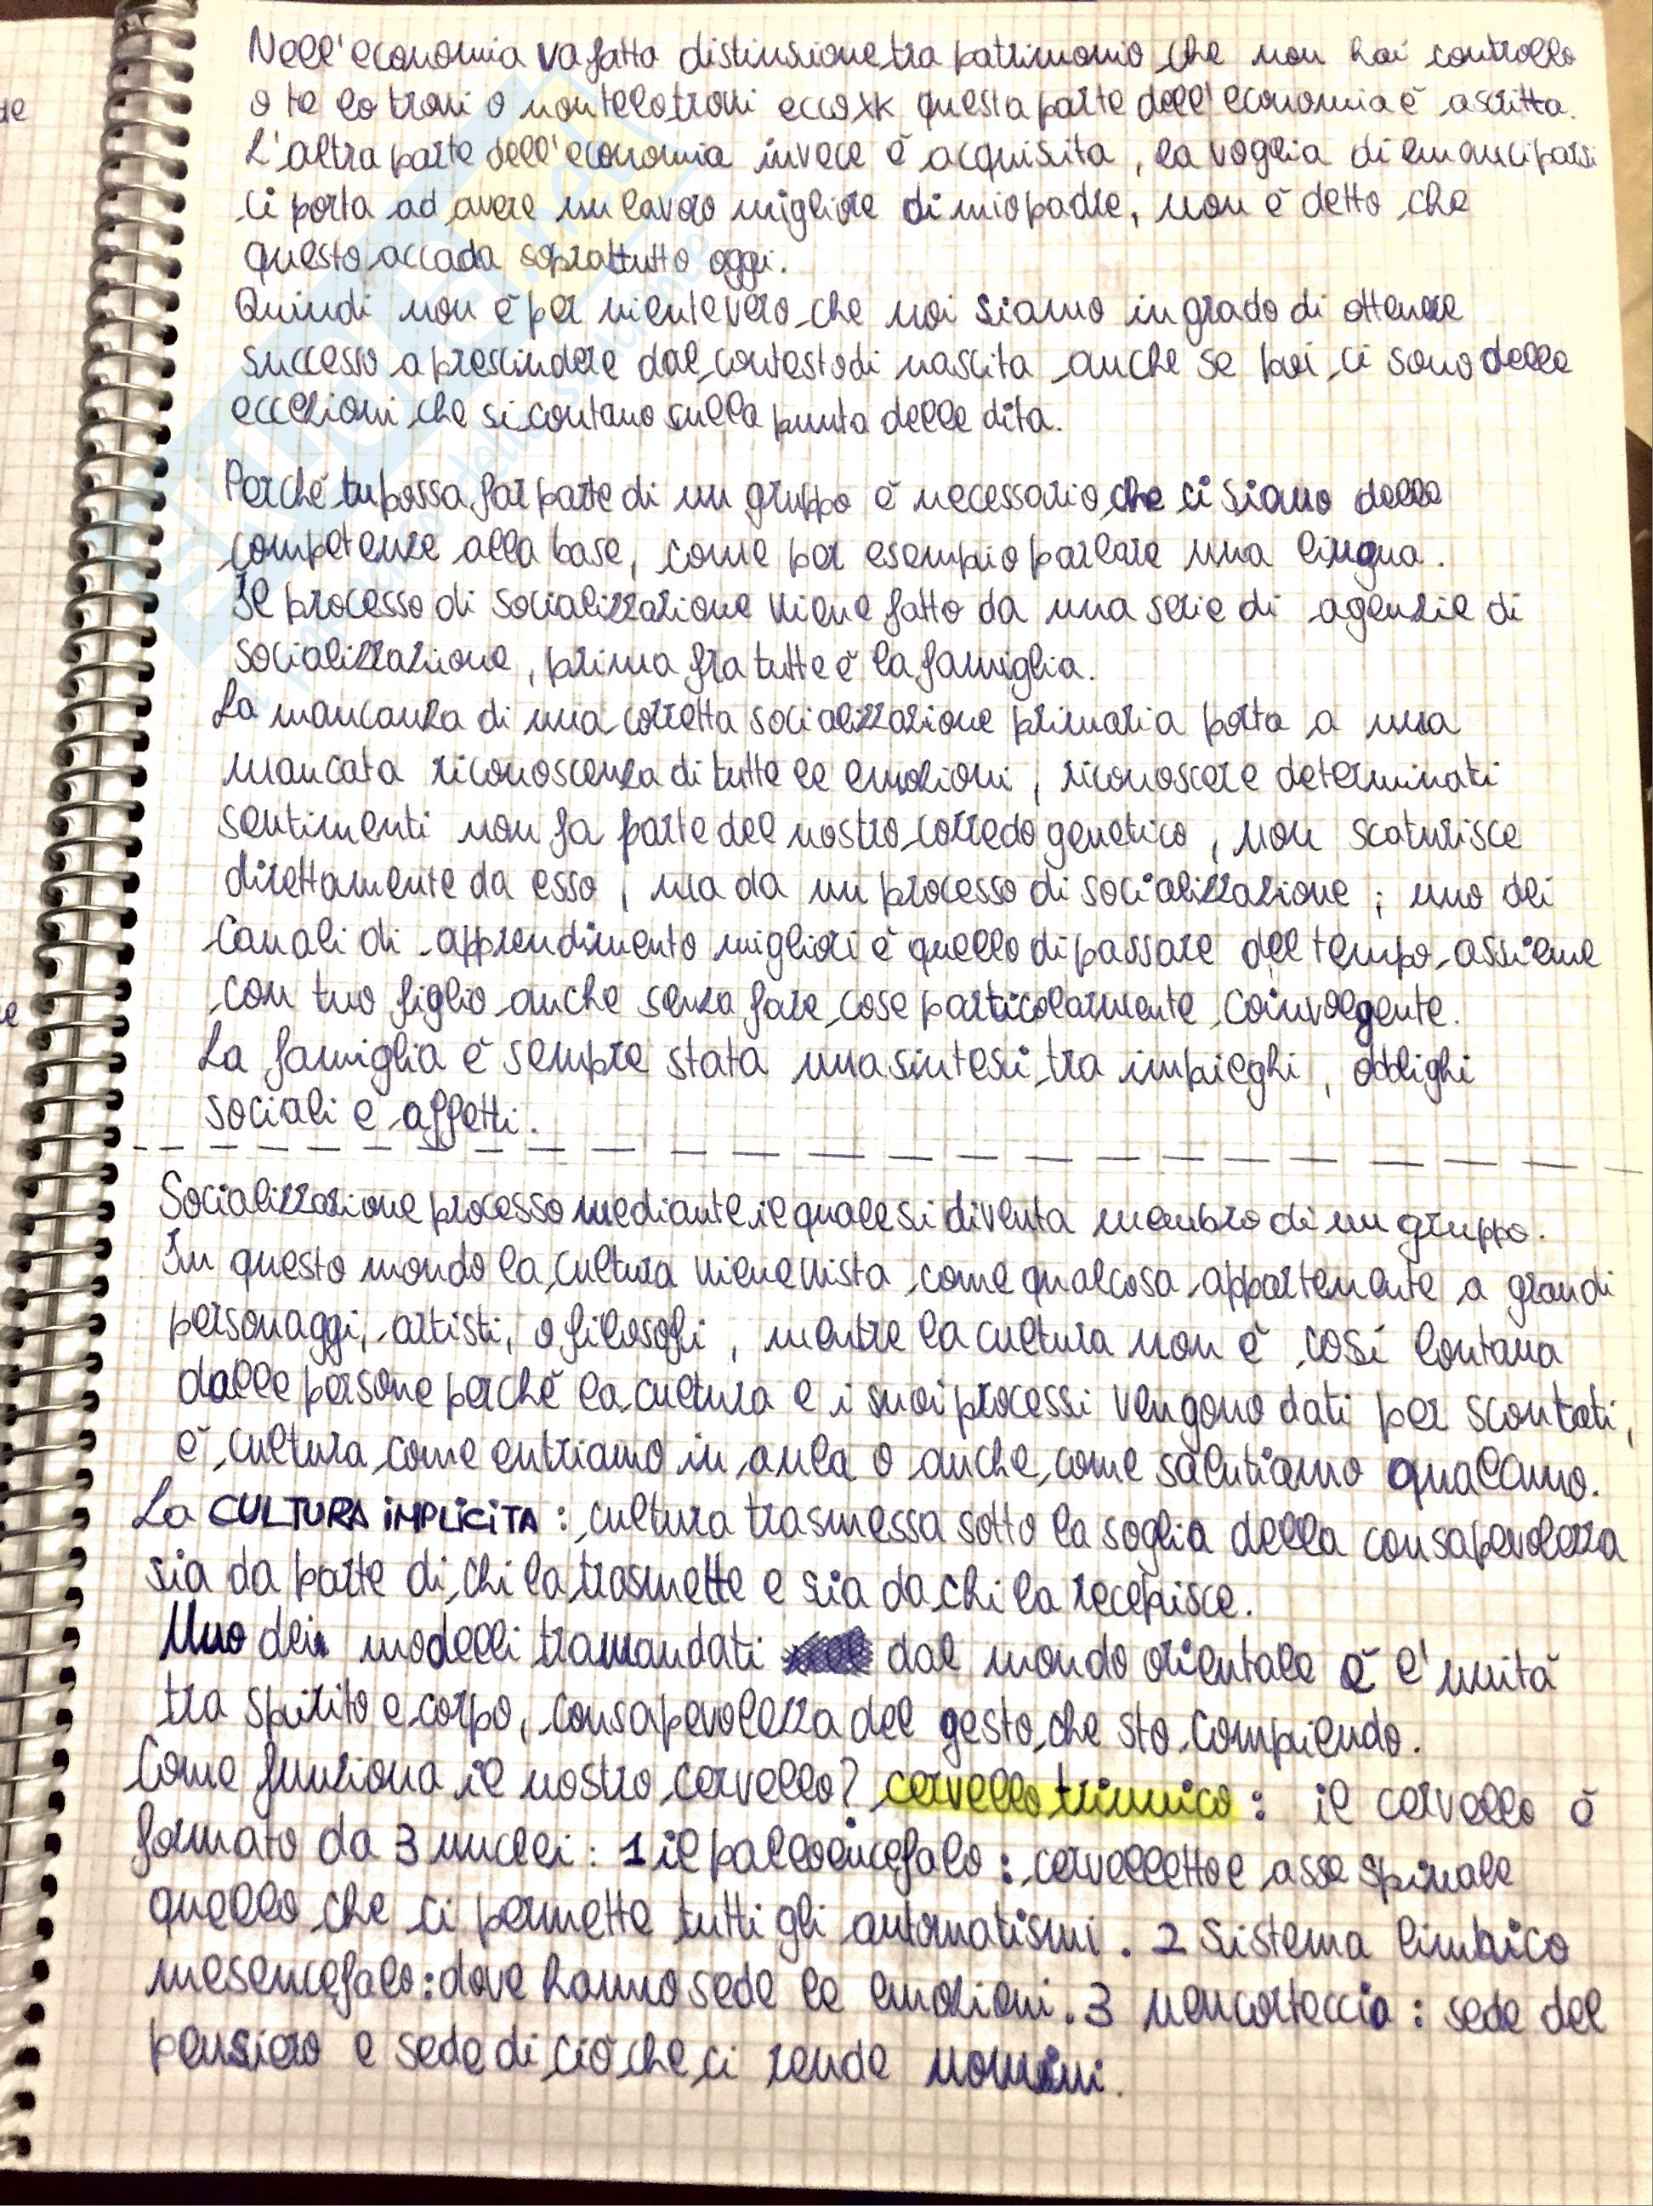 Nell'economia va fatta distinsione tra patrimonio che non hai controllo
o te lo trovi o non te lo trovi ecco xk questa parte dell'economia è ascritta.
L'altra parte dell'economia invece è acquisita, la voglia di emanciparsi
ci porta ad avere un lavoro migliore di mio padre, non è detto che
questo accada soprattutto oggi.
Quindi non è per niente vero che noi siamo in grado di ottenere
successo a prescindere dal contesto di nascita anche se poi ci sono delle
eccezioni che si contano sulla punta delle dita.
Perché tu possa far parte di un gruppo è necessario che ci siano delle
competenze alla base, come per esempio parlare una lingua.
Il processo di socializzazione viene fatto da una serie di agenzie di
socializzazione, prima fra tutte è la famiglia.
La mancanza di una corretta socializzazione primaria porta a una
mancata riconoscenza di tutte le emozioni, riconoscere determinati
sentimenti non fa parte del nostro corredo genetico, non scaturisce
direttamente da esso, ma da un processo di socializzazione; uno dei
canali di apprendimento migliori è quello di passare del tempo assieme
con tuo figlio anche senza fare cose particolarmente coinvolgente.
La famiglia è sempre stata una sintesi tra impieghi, obblighi
sociali e affetti.
Socializzazione processo mediante il quale si diventa membro di un gruppo.
In questo mondo la cultura viene vista come qualcosa appartenente a grandi
personaggi, artisti, o filosofi, mentre la cultura non è così lontana
dalle persone perché la cultura e i suoi processi vengono dati per scontati,
è cultura come entriamo in aula o anche come salutiamo qualcuno.
La CULTURA IMPLICITA: cultura trasmessa sotto la soglia della consapevolezza
sia da parte di chi la trasmette e sia da chi la recepisce.
Uno dei modelli tramandati dal mondo orientale è l'unità
tra spirito e corpo, consapevolezza del gesto che sto compiendo.
Come funziona il nostro cervello? cervello triunico: il cervello è
formato da 3 nuclei: 1 il paleoencefalo: cervelletto e asse spinale
quello che ci permette tutti gli automatismi. 2 Sistema limbico
mesencefalo: dove hanno sede le emozioni. 3 neucorteccia: sede del
pensiero e sede di ciò che ci rende uomini.